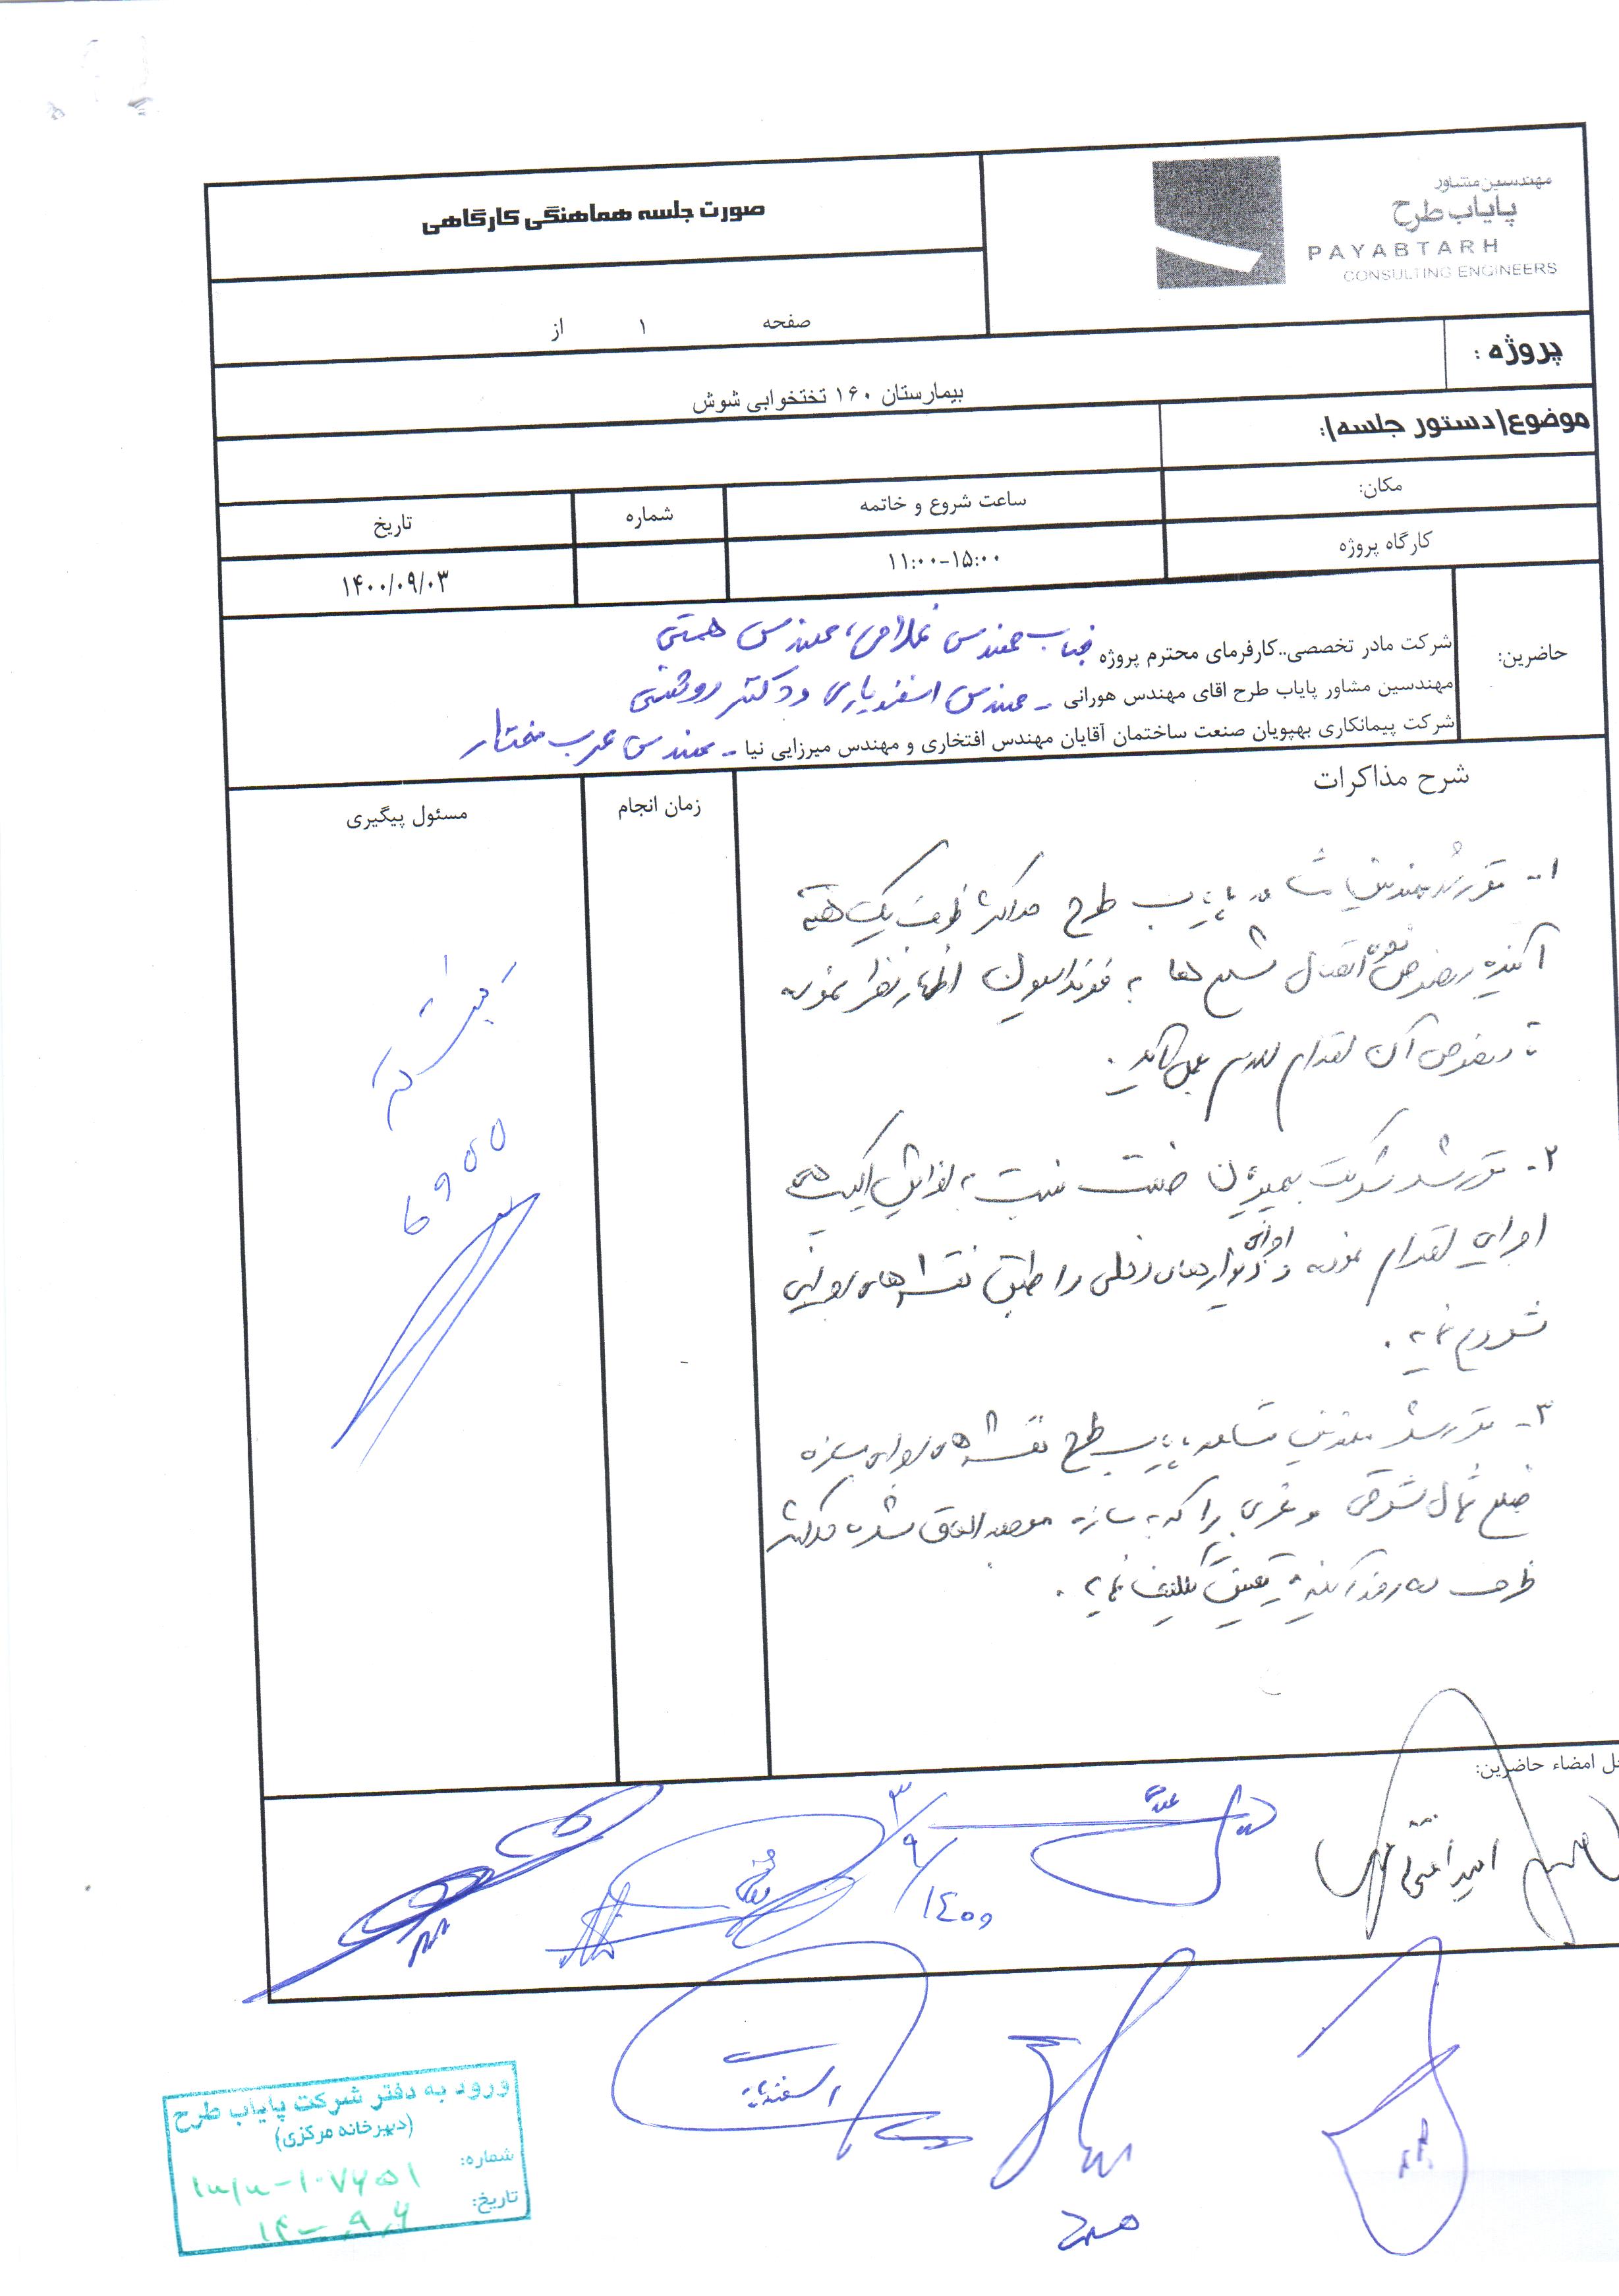 مهندسین مشاور
پایاب طرح
PAYABTARH
CONSULTING ENGINEERS
صورت جلسه هماهنگی کارگاهی
صفحه ۱ از
پروژه :
بیمارستان ۱۶۰ تختخوابی شوش
موضوع(دستور جلسه):
مکان: ساعت شروع و خاتمه شماره تاریخ
کارگاه پروژه ۱۱:۰۰-۱۵:۰۰ ۱۴۰۰/۰۹/۰۳
حاضرین:
شرکت مادر تخصصی..کارفرمای محترم پروژه جناب مهندس غلامی، مهندس همتی
مهندسین مشاور پایاب طرح اقای مهندس هورانی - مهندس اسفندیاری و دکتر روشنی
شرکت پیمانکاری بهپویان صنعت ساختمان آقایان مهندس افتخاری و مهندس میرزایی نیا - مهندس عرب مختار
شرح مذاکرات زمان انجام مسئول پیگیری
۱- مقرر شد مهندسین مشاور پایاب طرح حداکثر ظرف یک هفته
آینده درخصوص نحوه اتصال شمع ها به فونداسیون اظهار نظر نموده
تا درخصوص آن اقدام لازم بعمل آید.
۲- مقرر شد شرکت بهپویان صنعت نسبت به افزایش اکیپ های
اجرایی اقدام نموده و اجرای دیوارهای داخلی را طبق نقشه های
شروع نماید.
۳- مقرر شد مهندسین مشاور پایاب طرح نقشه های سازه
ضلع شمال شرقی و غربی را که به سازه الحاق شده حداکثر
ظرف روز آینده تعیین تکلیف نماید.
محل امضاء حاضرین:
امیر افتخاری
۱۴۰۰/۹/۳
ورود به دفتر شرکت پایاب طرح
(دبیرخانه مرکزی)
شماره:
تاریخ: ۱۴۰۰/۹/۶